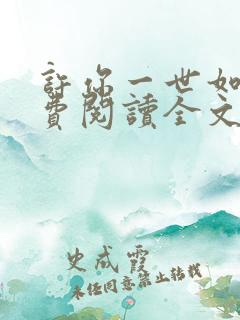 許你一世如
費閱讀全文
史成霞
未经同意禁止转载